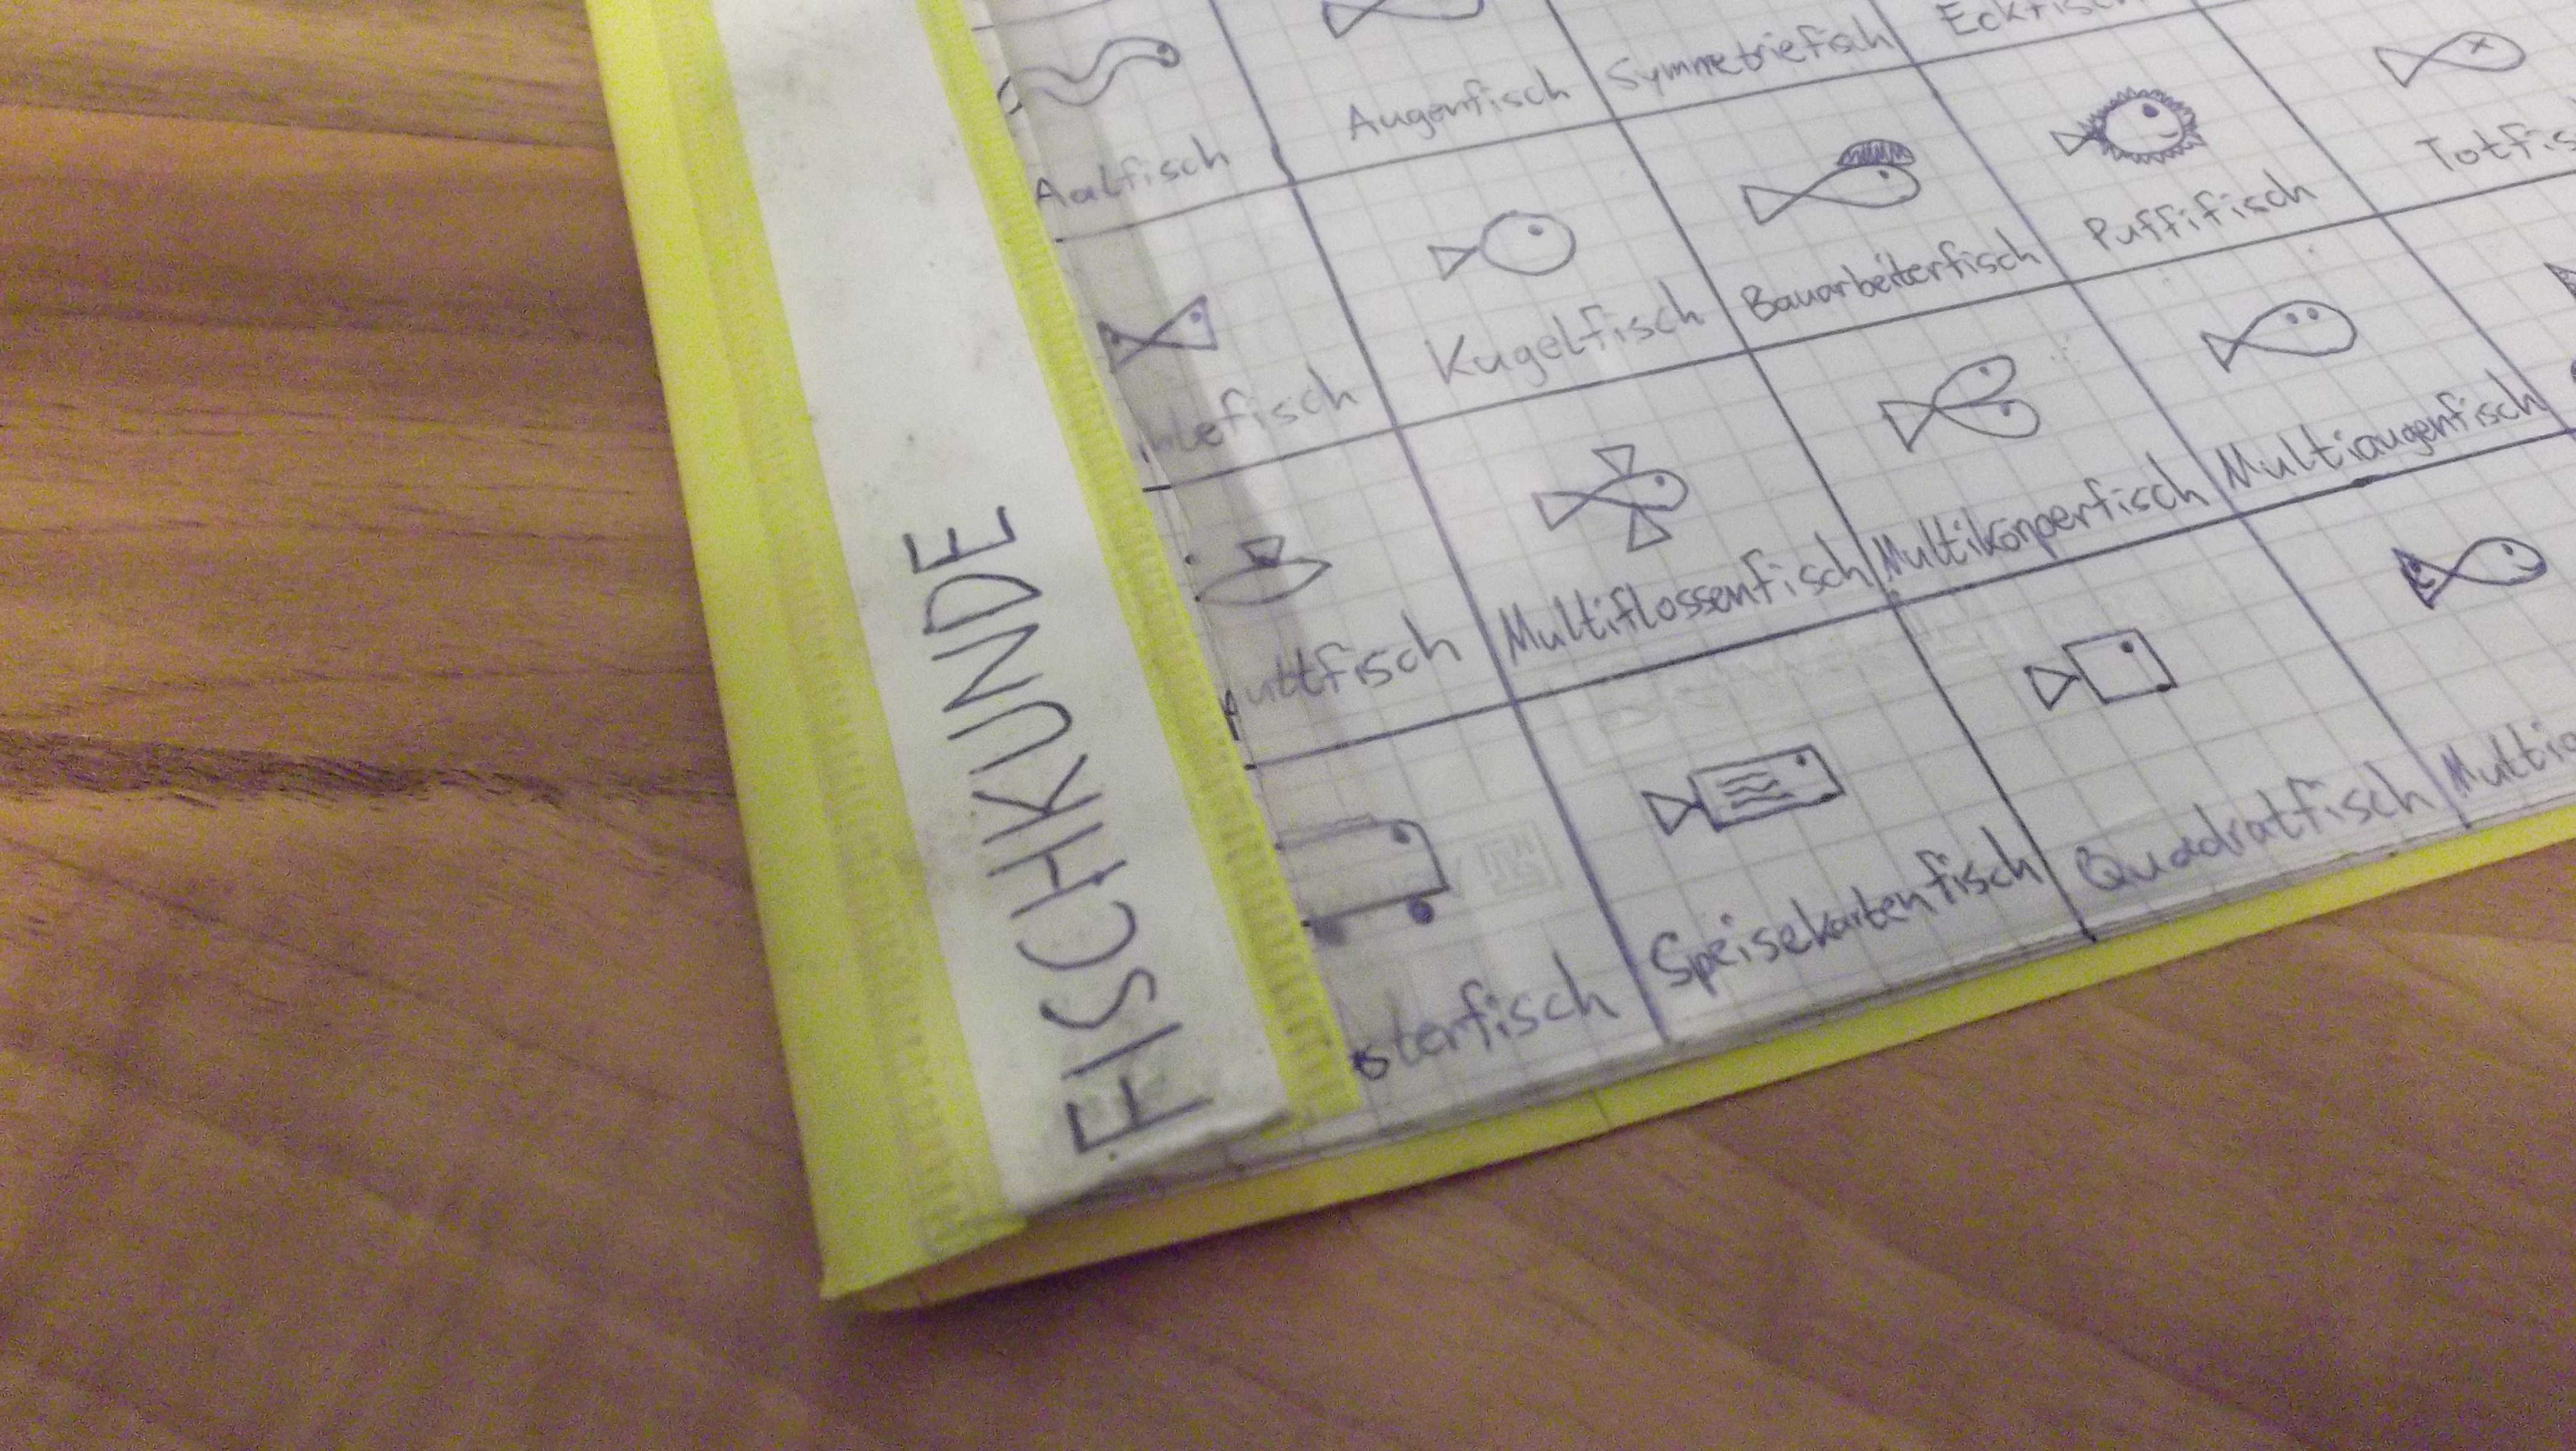 FISCHKUNDE
Aalfisch
Augenfisch
Symmetriefisch
Eckfisch
Kugelfisch
Bauarbeiterfisch
Puffifisch
Multiflossenfisch
Multikörperfisch
Multiaugenfisch
Speisekartenfisch
Quadratfisch